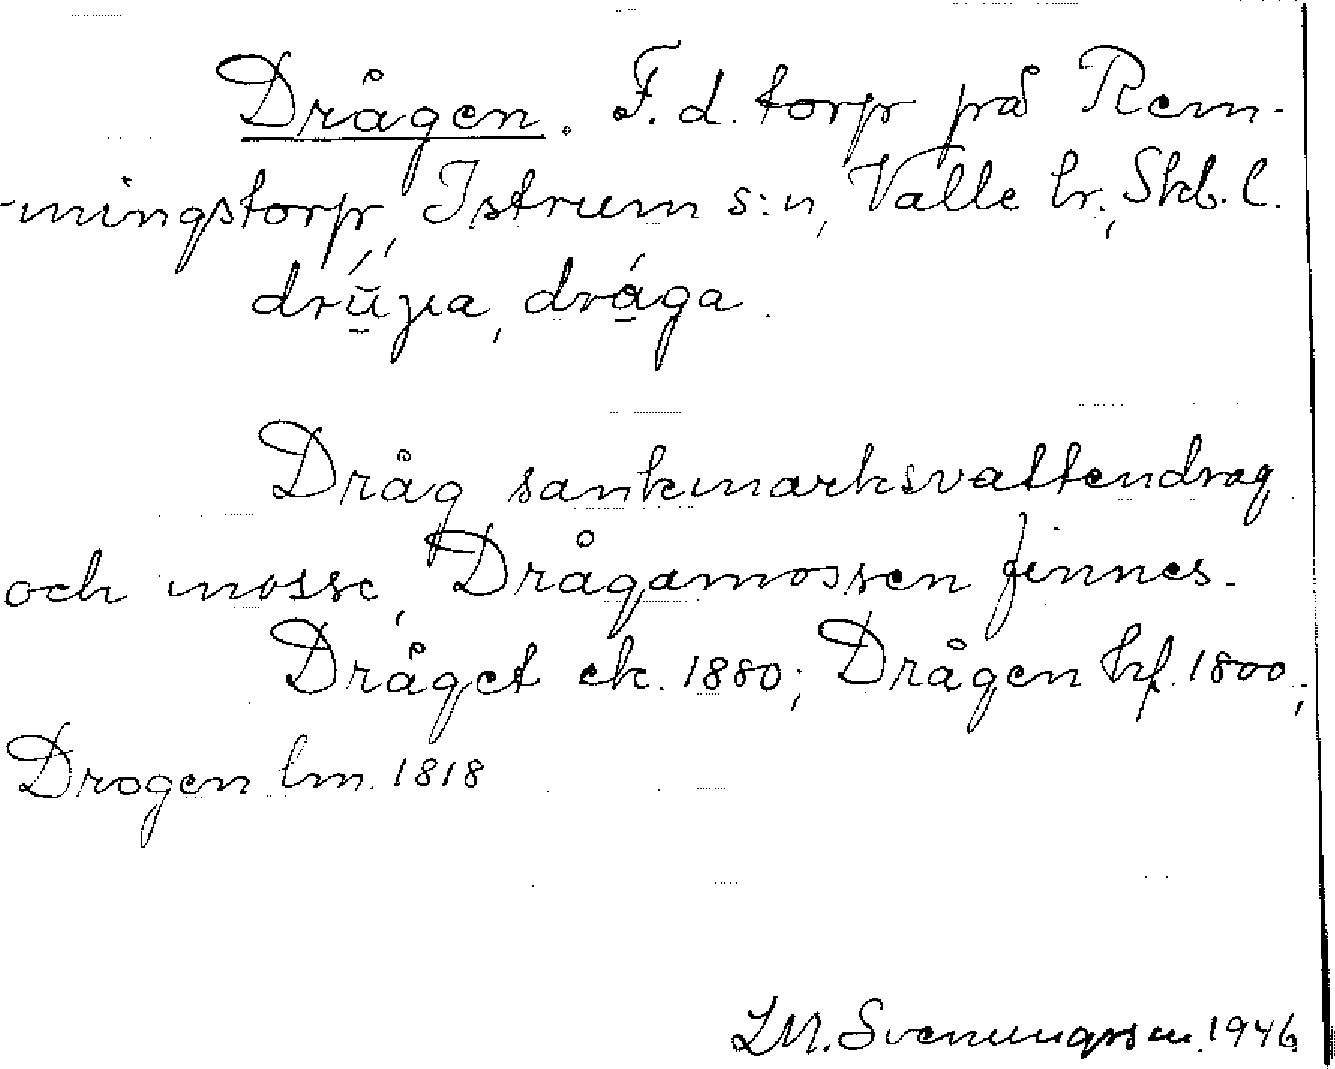 Drågen. F.d. torp på Rem-
-mingstorp, Istrum s:n, Valle hr., Skb. l.
dråga.
Dråg sankmarksvattendrag
och mosse, Drågamossen finnes.
Dråget ek. 1880; Drågen hf. 1800;
Drogen lm. 1818
LM. Svenungsson. 1946